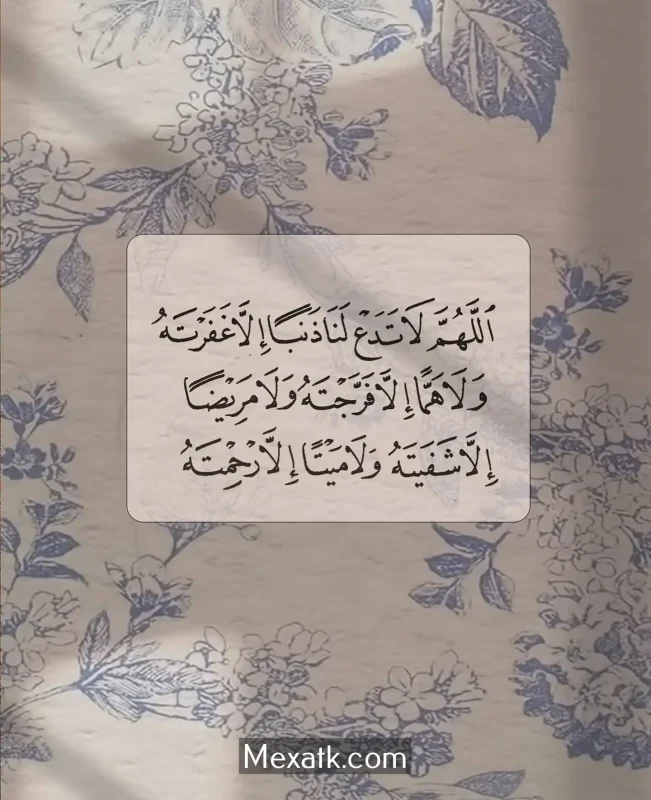 اَللَّهُمَّ لَاتَدَعْ لَنَا ذَنْبًا إِلَّا غَفَرْتَهُ
وَلَاهَمًّا إِلَّا فَرَّجْتَهُ وَلَا مَرِيْضًا
إِلَّا شَفَيْتَهُ وَلَا مَيْتًا إِلَّا رَحِمْتَهُ
Mexatk.com